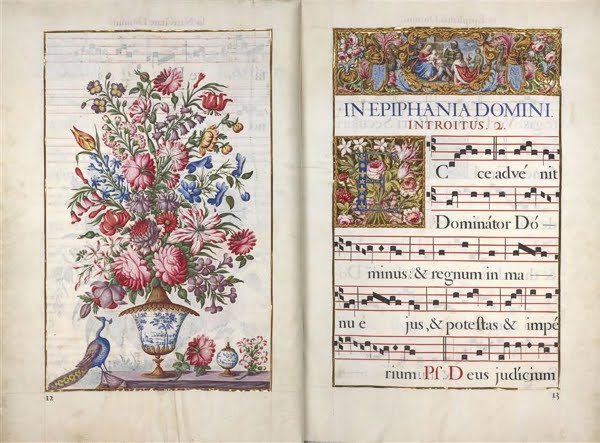 12
IN EPIPHANIA DOMINI.
INTROITUS. 2.
E C ce advé nit
Dominátor Dó
minus: & regnum in ma
nu e jus, & poteſtas & impé
rium Pſ. D eus judícium
13